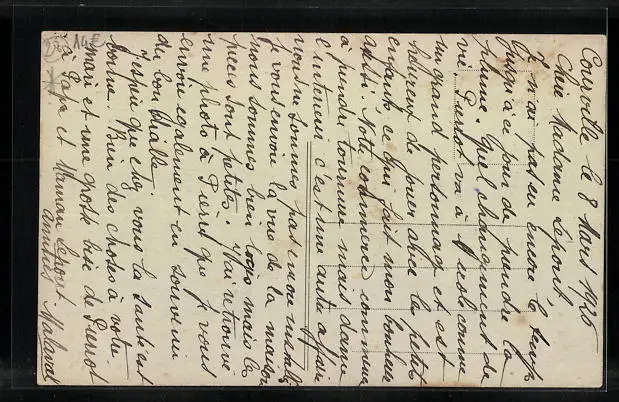 Courville le 8 Mars 1926
Chère Madame Lepont
Je n'ai pas eu encore le temps
jusqu'à ce jour de prendre la
plume. Quel changement de
vie. Pierrot va à l'école comme
un grand personnage et est
heureux de jouer avec les petits
enfants ce qui fait mon bonheur
aussi. Notre commerce commence
à prendre tournure mais dame
l'intérieur c'est une autre affaire
nous ne sommes pas encore installés
Je vous envoie la vue de la maison
nous sommes bien logés mais les
pièces sont petites. J'ai retrouvé
une photo à Pierrot que je vous
envoie également en souvenir
du bon
J'espère que chez vous la santé est
bonne. Bien des choses à votre
mari et une grosse bise de Pierrot
à Papa et Maman Lepont
amitiés